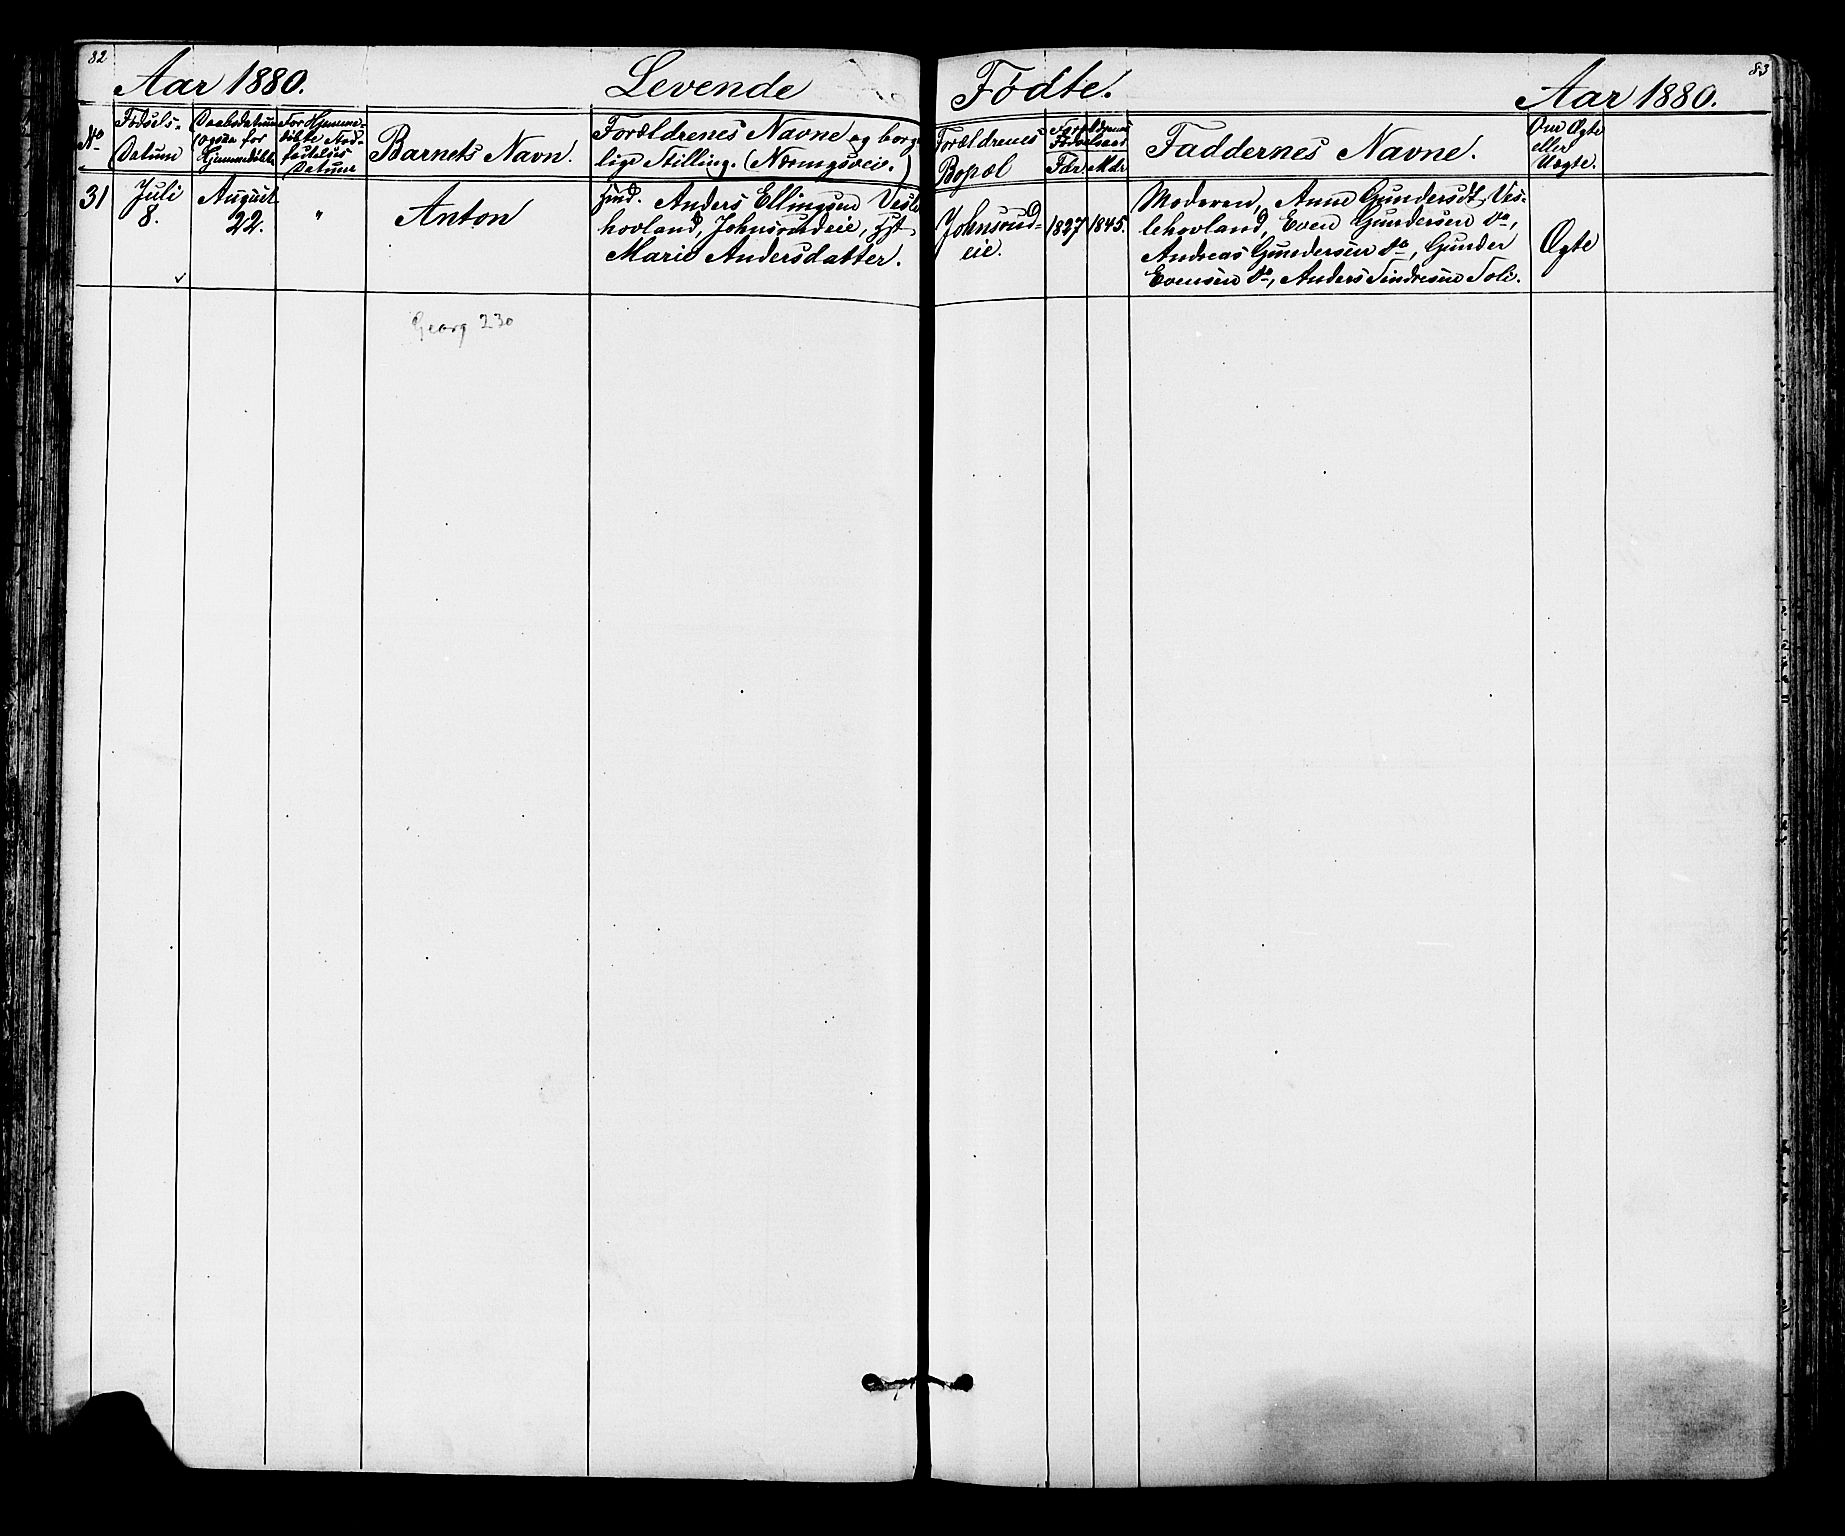 82
Aar 1880.
Levende
Fødte.
Aar 1880.
83
No
Fødsels-
Datum
Daabsdatum
(ogsaa for
Hjemmedøbte
For Hjemme-
døbte Stad-
fæstelses
Datum
Barnets Navn.
Forældrenes Navne og borger-
lige Stilling. (Næringsvei.)
Forældrenes
Bopæl
Forældrenes
Fødselsaar
Fdr. Mdr.
Faddernes Navne.
Om Ægte
eller
Uægte.
31
Juli
8.
August
22.
"
Anton
Inds. Anders Ellingsen Vesle
hovland, Johnsrudeie,
Marie Andersdatter.
Johnsrud-
eie.
1827
1845.
Moderen, Anne Gundersdt. Ves-
lehovland, Even Gundersen do,
Andreas Gundersen do, Gunder
Evensen do, Anders Sindresen Toli.
Ægte
Georg 230